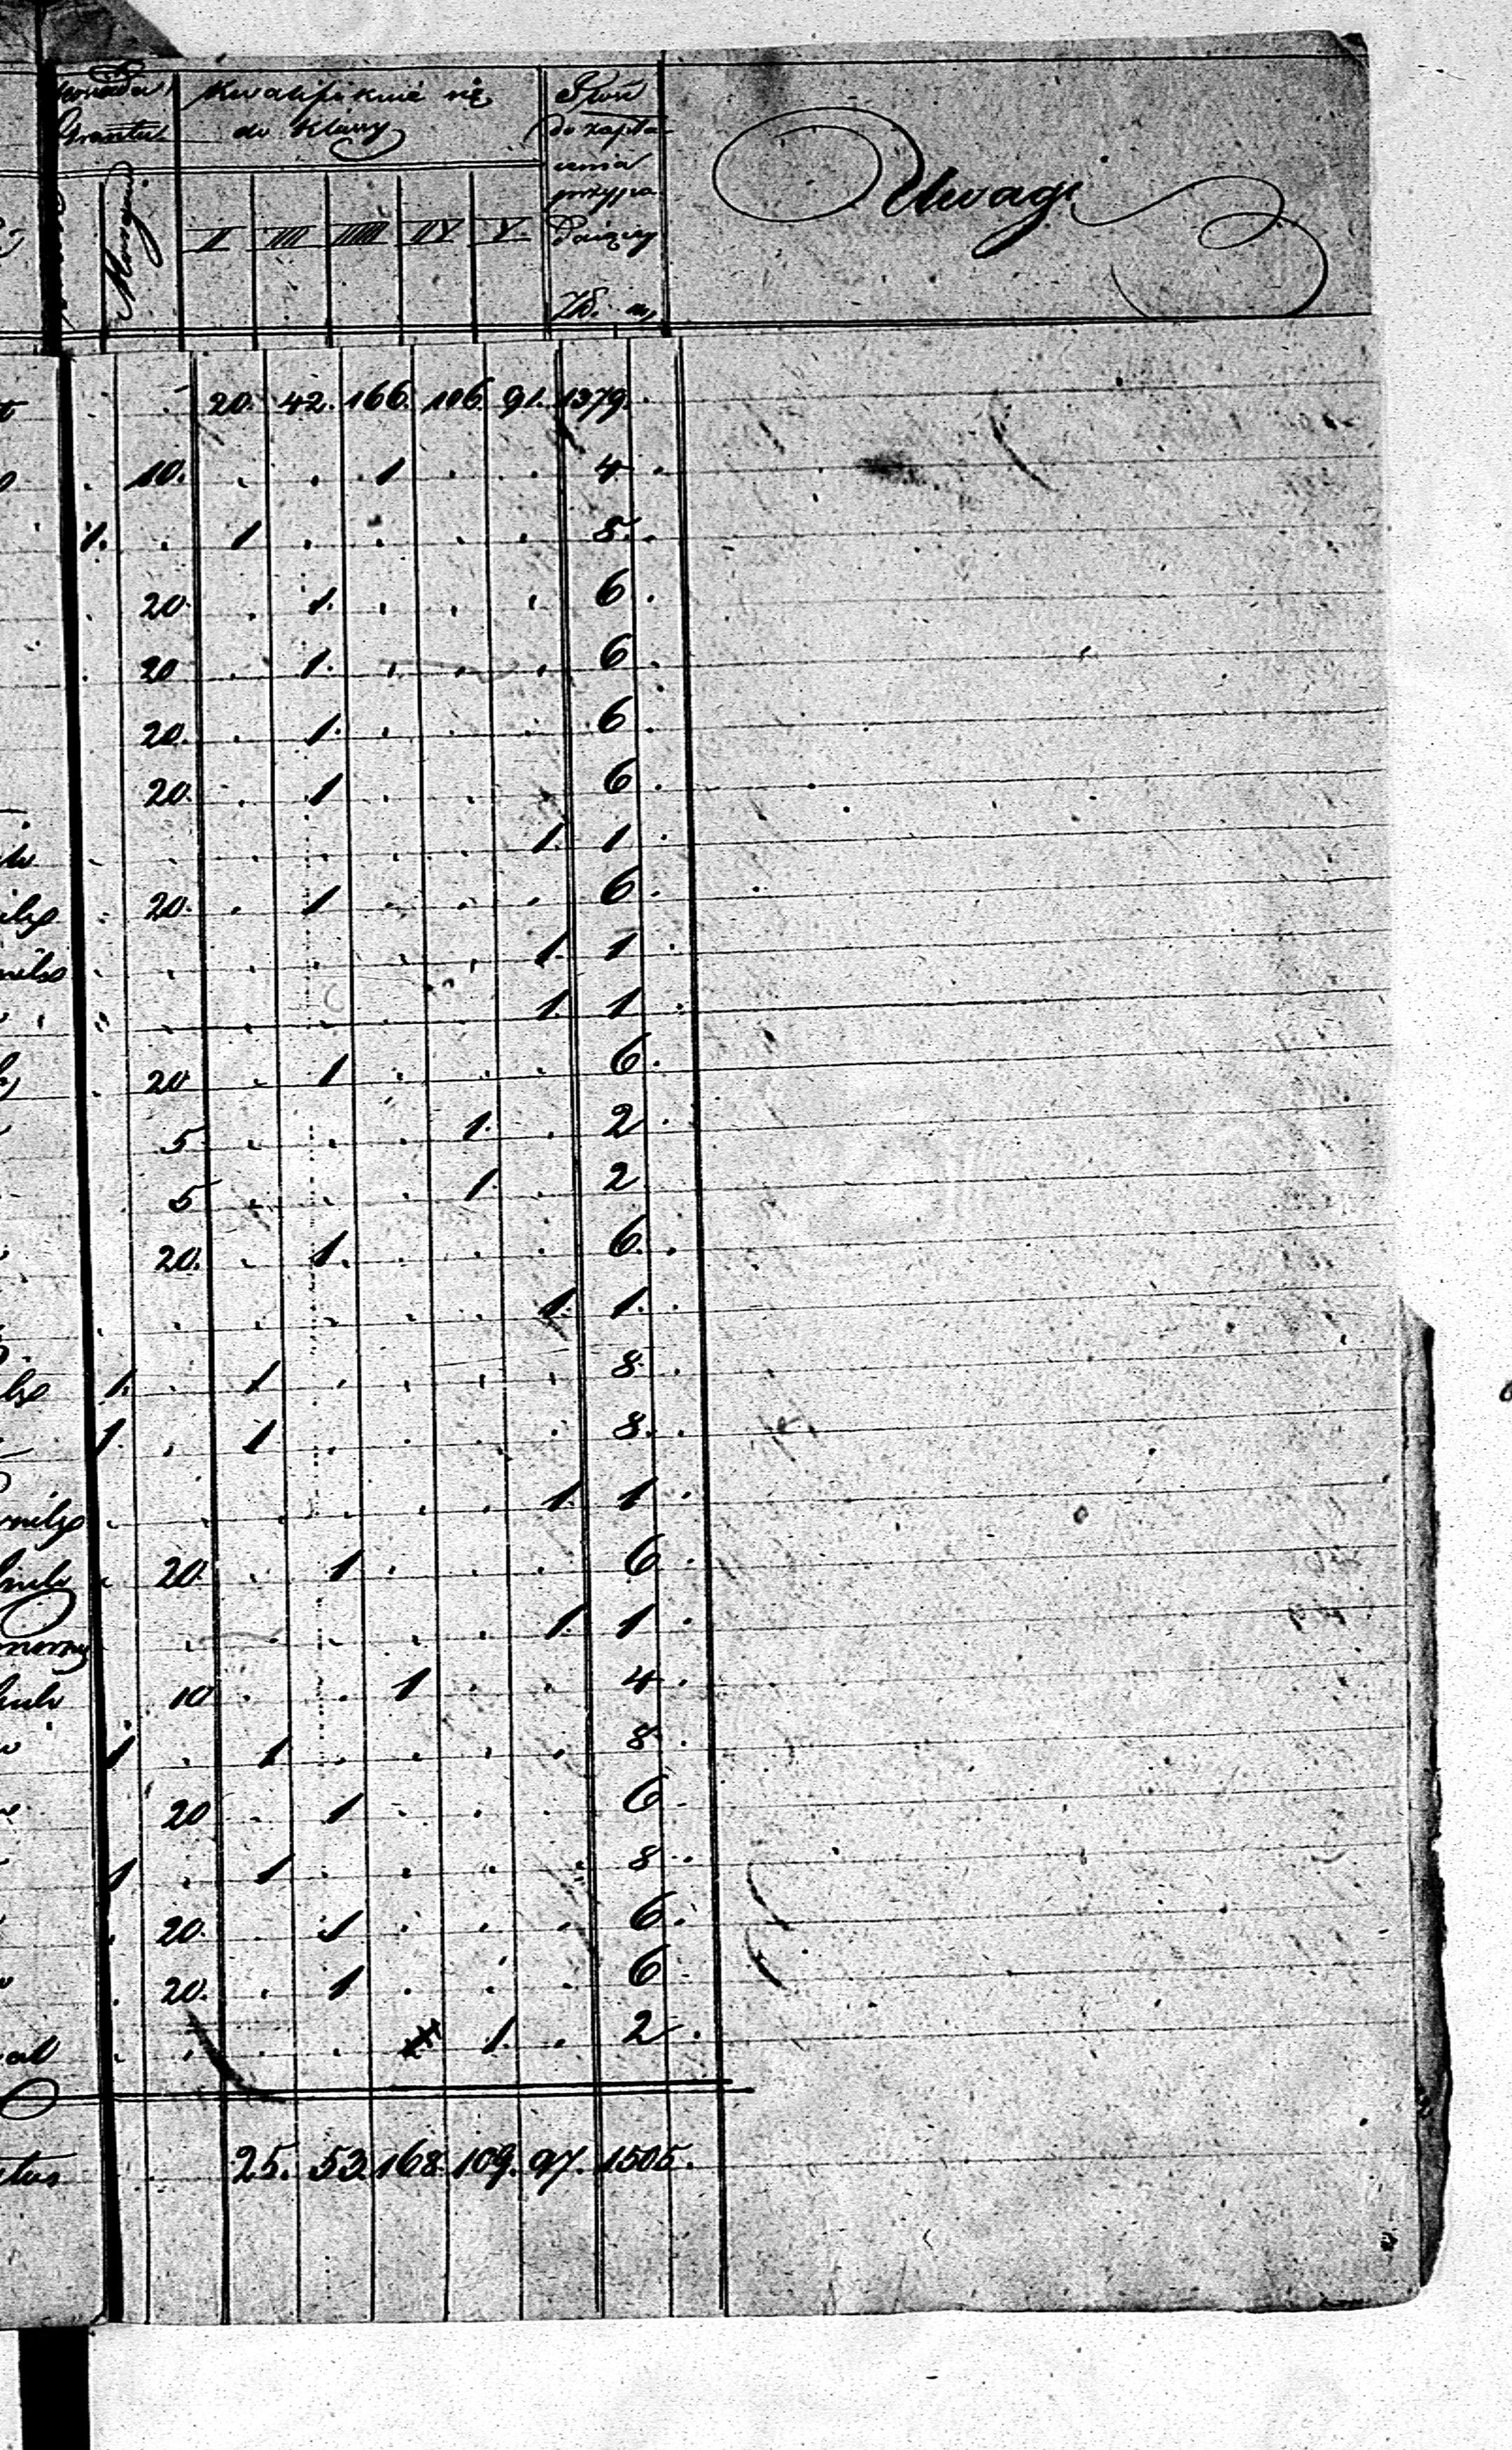 Gruntu
Kwalifikuie się
do Klassy
do zapła
cenia
przypa
daiący
Złl. gr,
Morgi
II III IIII IV V.
Uwagi
20. 42. 166. 106. 91. 1379.
10. 1 4
1. 1 8.
20. 1. 6
20 1. 6
20. 1. 6
20. 1 6
1. 1
20. 1 6
1. 1
1. 1
20 1 6
5 1. 2
5 1. 2
20. 1. 6.
1. 1.
1. 1 8
1. 1 8.
1. 1
20. 1 6
1. 1
10 1 4
1 1 8
20 1 6
1 1 8
20. 1 6
20. 1 6
1. 2
25. 53. 168. 109. 97. 1505.